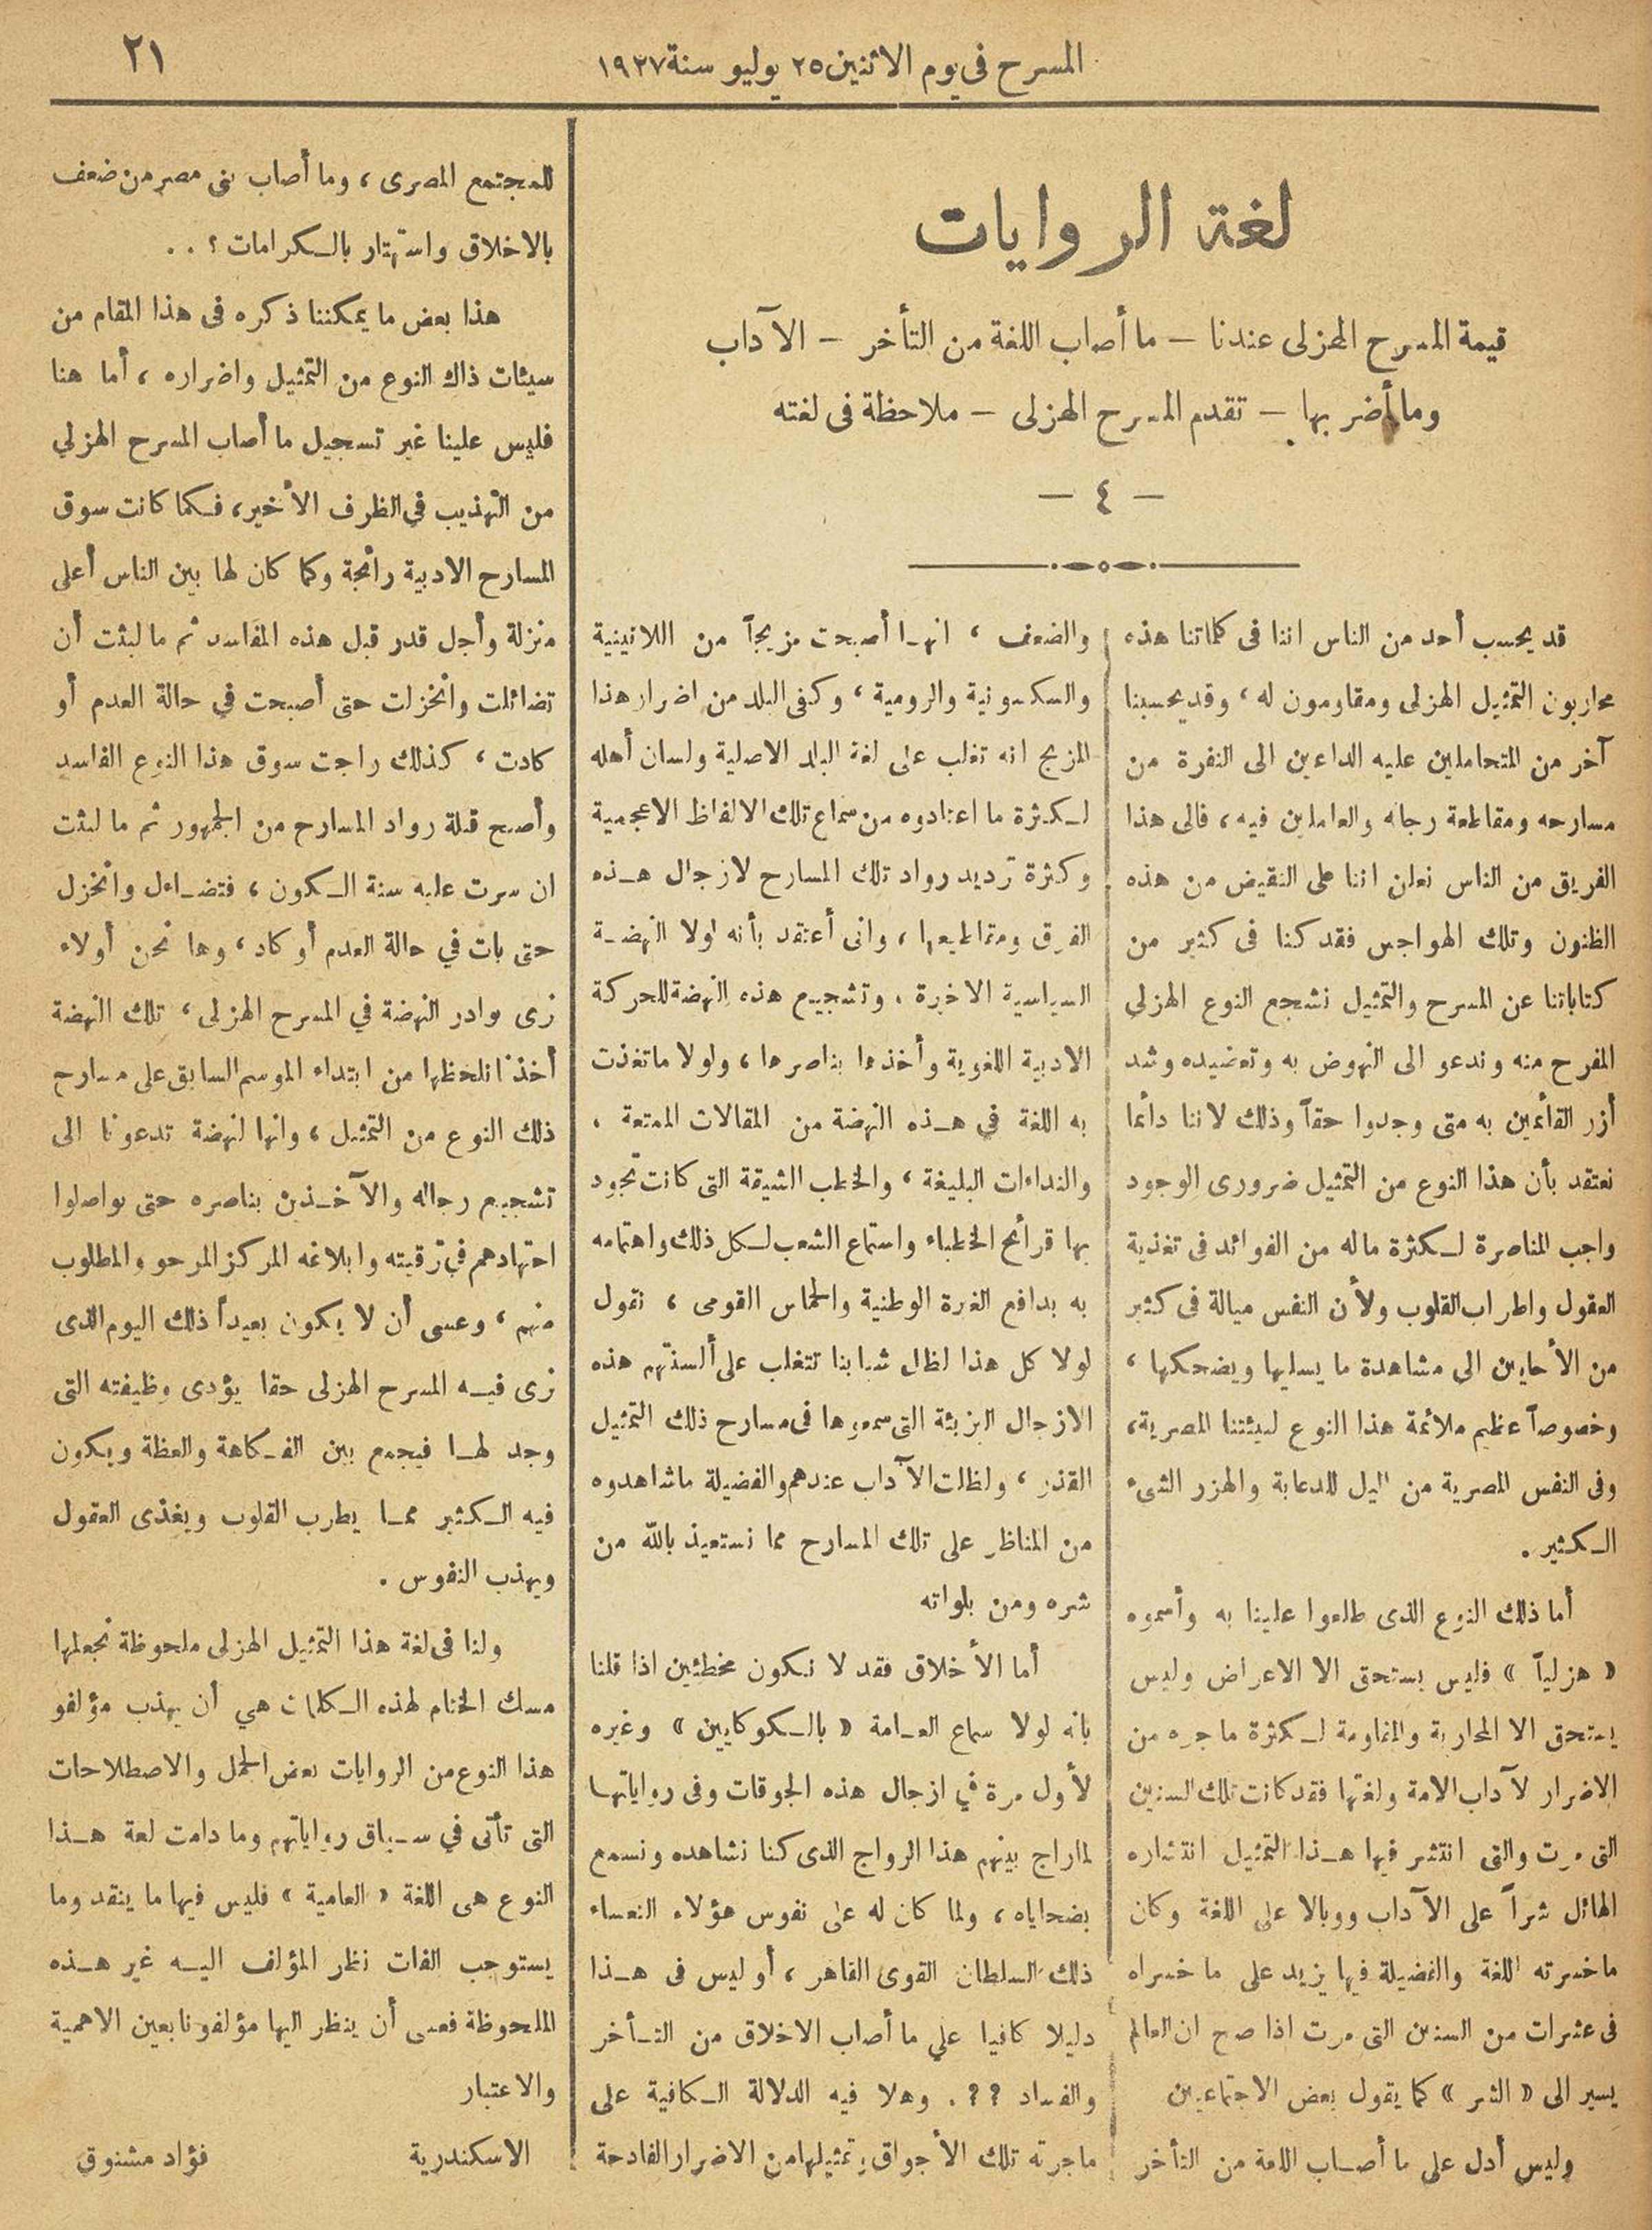 المسرح فى يوم الاثنين ٢٥ يوليو سنة ١٩٢٧
٢١
لغة الروايات
قيمة المسرح الهزلى عندنا — ما أصاب اللغة من التأخر — الآداب
وما أضر بها — تقدم المسرح الهزلى — ملاحظة فى لغته
— ٤ —
قد يحسب أحد من الناس اننا فى كلماتنا هذه
محاربون التمثيل الهزلى ومقاومون له ، وقد يحسبنا
آخر من المتحاملين عليه الداعين الى النفرة من
مسارحه ومقاطعة رجاله والعاملين فيه ، فالى هذا
الفريق من الناس نعلن اننا على النقيض من هذه
الظنون وتلك الهواجس فقد كنا فى كثير من
كتاباتنا عن المسرح والتمثيل نشجع النوع الهزلي
المفرح منه وندعو الى النهوض به وتعضيده وشد
أزر القائمين به متى وجدوا حقاً وذلك لاننا دائما
نعتقد بأن هذا النوع من التمثيل ضرورى الوجود
واجب المناصرة لـكثرة ماله من الفوائد فى تغذية
العقول واطراب القلوب ولأن النفس ميالة فى كثير
من الأحايين الى مشاهدة ما يسليها ويضحكها ،
وخصوصاً عظيم ملائمة هذا النوع لبيئتنا المصرية ،
وفى النفس المصرية من الميل للدعابة والهزر الشىء
الـكثير .
أما ذلك النوع الذى طلعوا علينا به وأسموه
« هزلياً » فليس يستحق الا الاعراض وليس
يستحق الا المحاربة والمقاومة لـكثرة ماجره من
الاضرار لآداب الامة ولغتها فقد كانت تلك السنين
التى مرت والتى انتشر فيها هـذا التمثيل انتشاره
الهائل شراً على الآداب ووبالا على اللغة وكان
ماخسرته اللغة والفضيلة فيها يزيد على ما خسراه
فى عشرات من السنين التى مرت اذا صح ان العالم
يسير الى « الشر » كما يقول بعض الاجتماعيين
وليس أدل على ما أصـاب اللغة من التأخر
والضعف ، انهـا أصبحت مزيجاً من اللاتينية
والسكسونية والرومية ، وكفى البلد من اضرار هذا
المزيج انه تغلب على لغة البلد الاصلية ولسان أهله
لـكثرة ما اعتادوه من سماع تلك الالفاظ الاعجمية
وكثرة ترديد رواد تلك المسارح لازجال هـذه
الفرق ومقاطيعها ، وانى أعتقد بأنه لولا النهضـة
السياسية الاخيرة ، وتشجيع هذه النهضة للحركة
الادبية اللغوية وأخذها بناصرها ، ولولا ماتغذت
به اللغة في هـذه النهضة من المقالات الممتعة ،
والنداءات البليغة ، والخطب الشيقة التى كانت تجود
بها قرائح الخطباء واستماع الشعب لـكل ذلك واهتمامه
به بدافع الغرة الوطنية والحماس القومى ، نقول
لولا كل هذا لظل شبابنا تتغلب على ألسنتهم هذه
الازجال البزيئة التى سمعوها فى مسارح ذلك التمثيل
القذر ، ولظلت الآداب عندهم والفضيلة ماشاهدوه
من المناظر على تلك المسارح مما نستعيذ بالله من
شره ومن بلواته
أما الأخلاق فقد لا نكون مخطئين اذا قلنا
بانه لولا سماع العـامة « بالـكوكايين » وغيره
لأول مرة في ازجال هذه الجوقات وفى رواياتهـا
لماراج بينهم هذا الرواج الذى كنا نشاهده ونسمع
بضحاياه ، ولما كان له على نفوس هؤلاء التعساء
ذلك السلطان القوى القاهر ، أو ليس فى هـذا
دليلا كافيا على ما أصاب الاخلاق من التـأخر
والفساد ؟؟ . وهلا فيه الدلالة الـكافية على
ماجرته تلك الأجواق وتمثيلها من الاضرار الفادحة
للمجتمع المصرى ، وما أصاب بنى مصر من ضعف
بالاخلاق واستهتار بالـكرامات ؟ . .
هذا بعض ما يمكننا ذكره فى هذا المقام من
سيئات ذاك النوع من التمثيل واضراره ، أما هنا
فليس علينا غير تسجيل ما أصاب المسرح الهزلي
من التهذيب في الظرف الأخير ، فـكما كانت سوق
المسارح الادبية رائجة وكما كان لها بين الناس أعلى
منزلة وأجل قدر قبل هذه المفاسد ثم ما لبثت أن
تضائلت وانخزلت حتى أصبحت في حالة العدم أو
كادت ، كذلك راجت سوق هذا النوع الفاسد
وأصبح قبلة رواد المسارح من الجمهور ثم ما لبثت
ان سرت عليه سنة الـكون ، فتضـاءل وانخزل
حتى بات في حالة العدم أو كاد ، وها نحن أولاء
نرى بوادر النهضة في المسرح الهزلى ، تلك النهضة
أخذنا نلحظها من ابتداء الموسم السابق على مسارح
ذلك النوع من التمثيل ، وانها لنهضة تدعونا الى
تشجيع رجاله والآخـذين بناصره حتى يواصلوا
اجتهادهم في ترقيته وابلاغه المركز المرجو والمطلوب
منهم ، وعسى أن لا يكون بعيداً ذلك اليوم الذى
نرى فيـه المسرح الهزلى حقا يؤدى وظيفته التى
وجد لهـا فيجمع بين الفـكاهة والعظة ويكون
فيه الـكثير ممـا يطرب القلوب ويغذى العقول
ويهذب النفوس .
ولنا فى لغة هذا التمثيل الهزلى ملحوظة نجعلها
مسك الختام لهذه الـكلمات هي أن يهذب مؤلفو
هذا النوع من الروايات بعض الجمل والاصطلاحات
التى تأتى في سـياق رواياتهم وما دامت لغة هـذا
النوع هى اللغة « العامية » فليس فيها ما ينقد وما
يستوجب الفات نظر المؤلف اليـه غير هـذه
الملحوظة فعسى أن ينظر اليها مؤلفونا بعين الاهمية
والاعتبار
الاسكندرية
فؤاد مشنوق